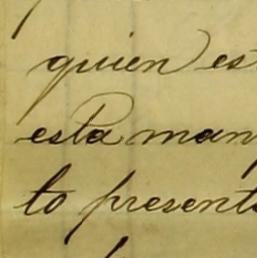 quien es
esta man
to present